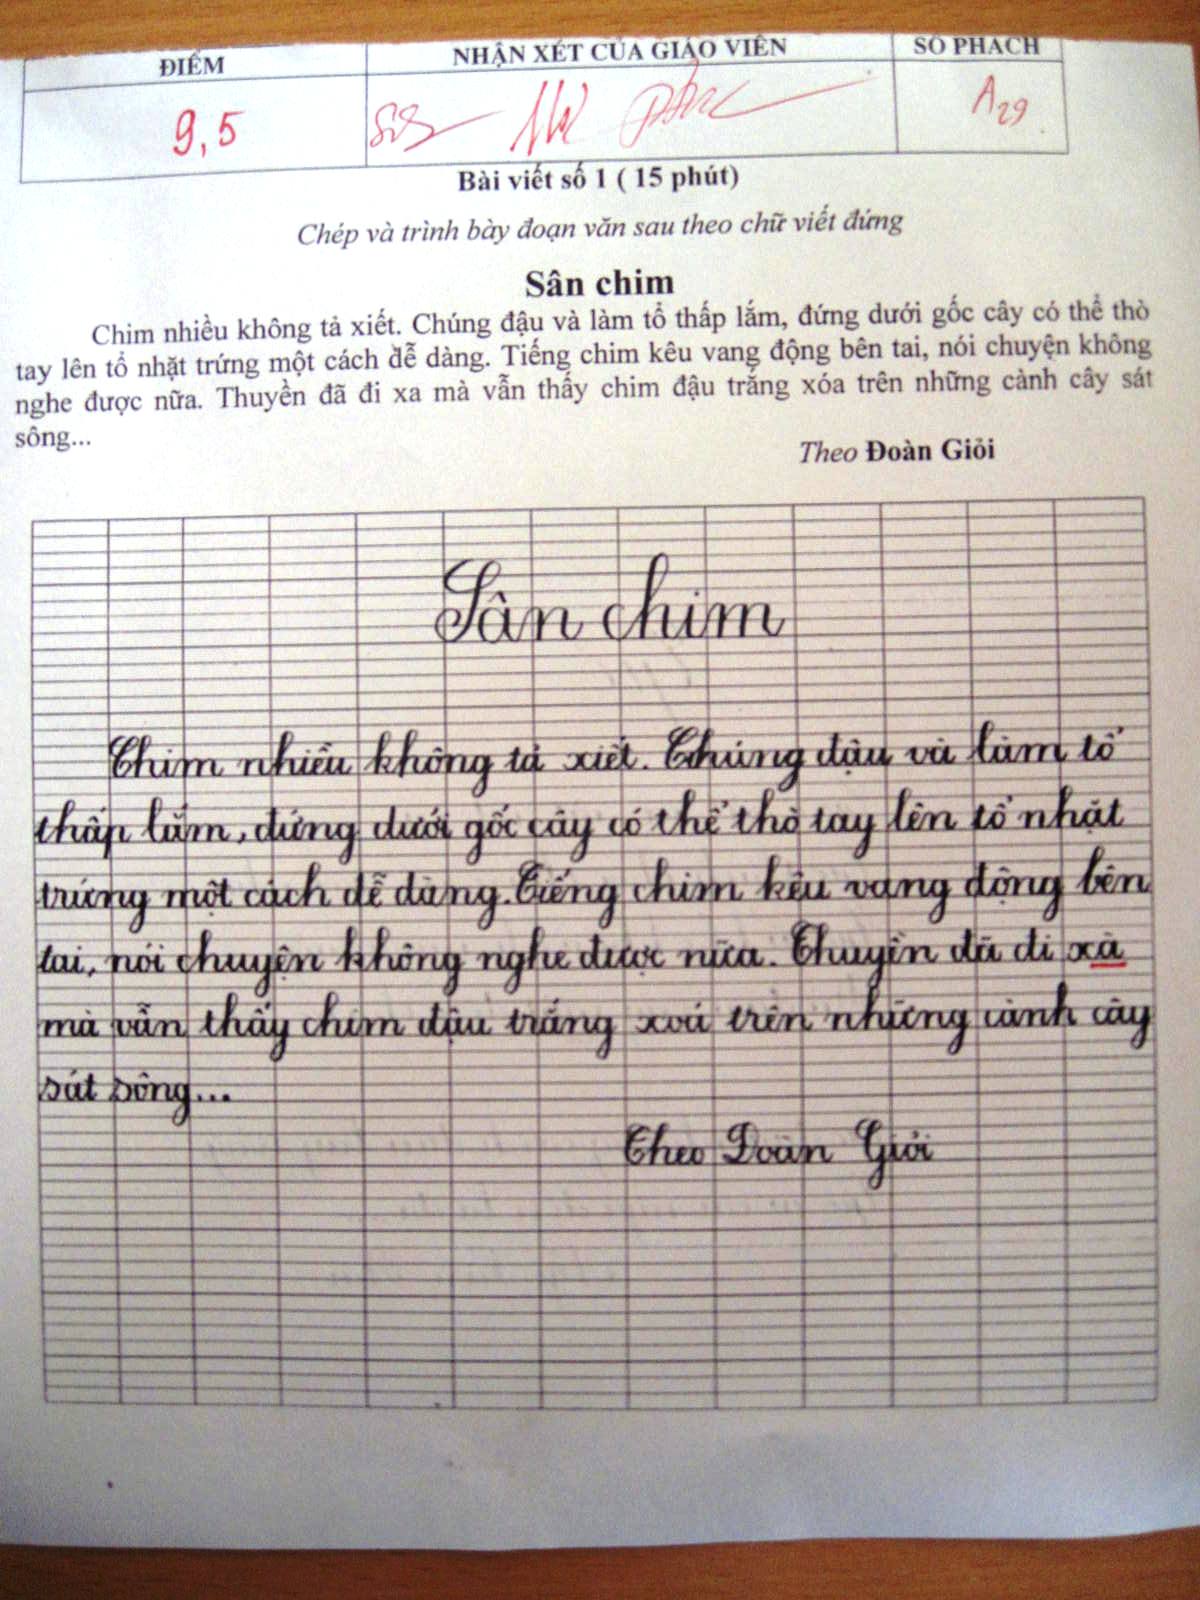 ĐIỂM NHẬN XÉT CỦA GIÁO VIÊN SỐ PHÁCH
9,5 A29
Bài viết số 1 ( 15 phút)
Chép và trình bày đoạn văn sau theo chữ viết đứng
Sân chim
Chim nhiều không tả xiết. Chúng đậu và làm tổ thấp lắm, đứng dưới gốc cây có thể thò
tay lên tổ nhặt trứng một cách dễ dàng. Tiếng chim kêu vang động bên tai, nói chuyện không
nghe được nữa. Thuyền đã đi xa mà vẫn thấy chim đậu trắng xóa trên những cành cây sát
sông...
Theo Đoàn Giỏi
Sân chim
Chim nhiều không tả xiết. Chúng đậu và làm tổ
thấp lắm, đứng dưới gốc cây có thể thò tay lên tổ nhặt
trứng một cách dễ dàng. Tiếng chim kêu vang động bên
tai, nói chuyện không nghe được nữa. Thuyền đã đi xà
mà vẫn thấy chim đậu trắng xoá trên những cành cây
sát sông...
Theo Đoàn Giỏi